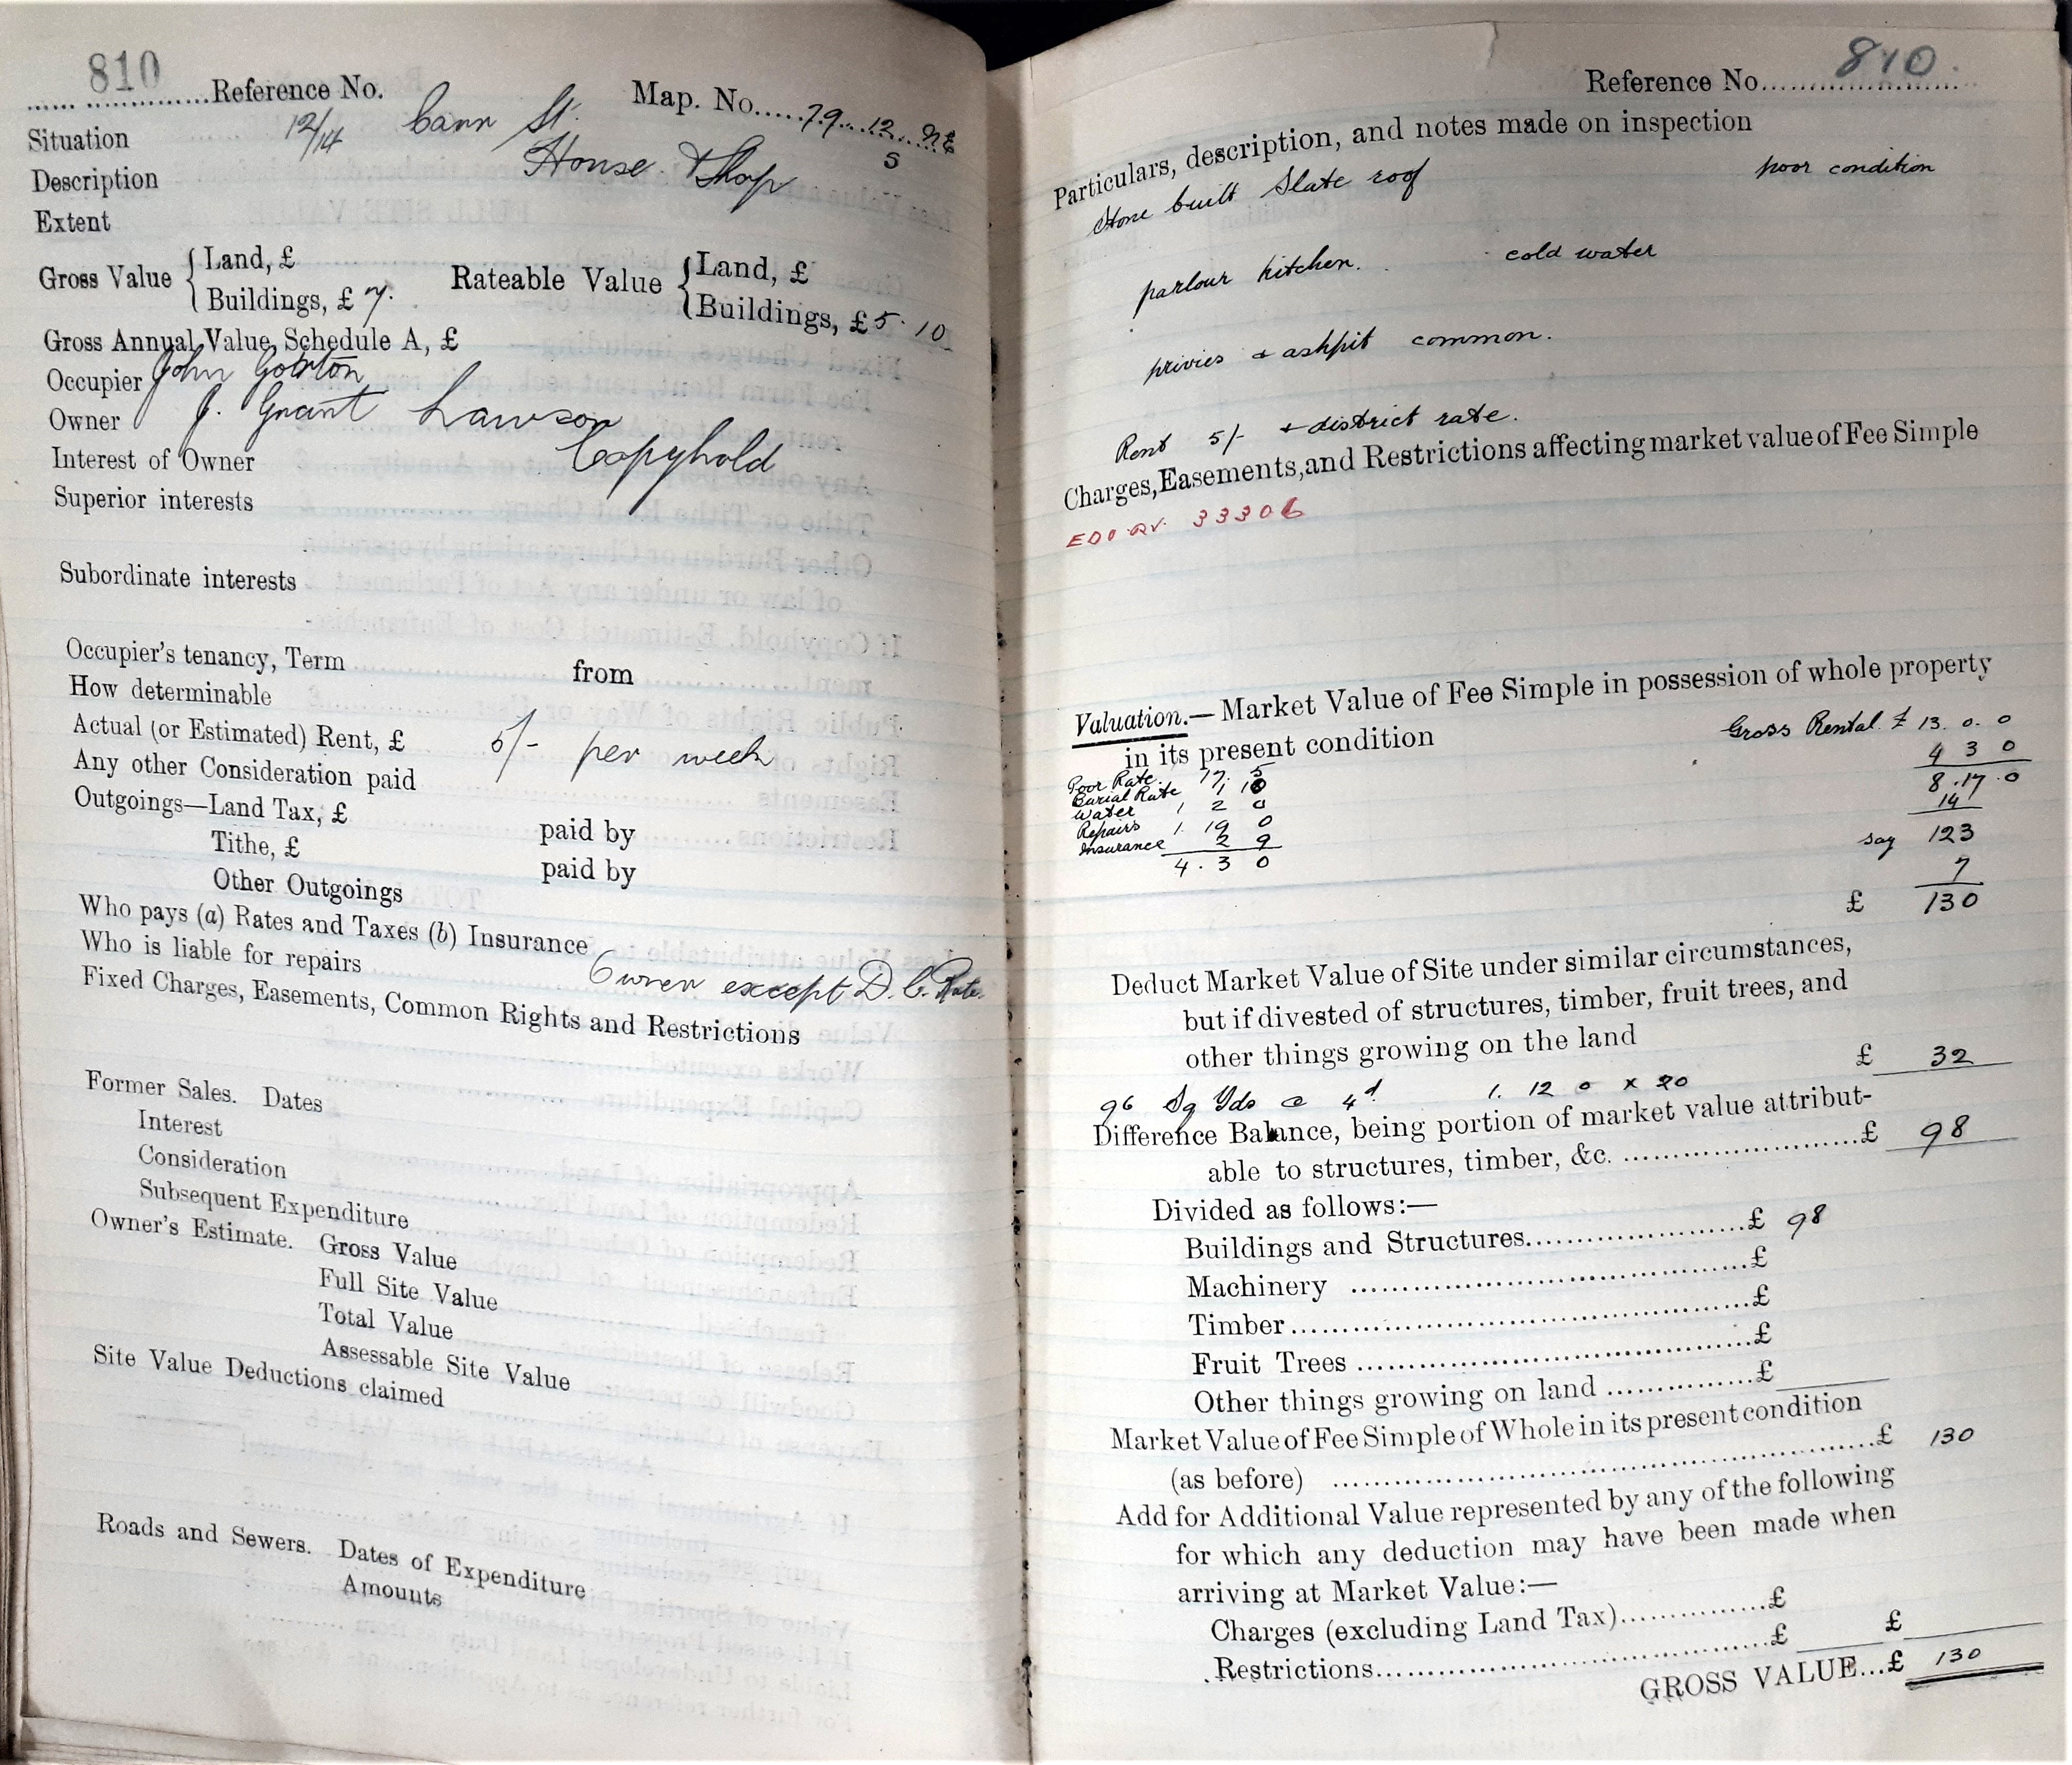 810
Reference No.
Map. No. 79. 12. NE
S
Situation 12/14 Cann St.
Description House & Shop
Extent
Gross Value { Land, £
Buildings, £ 7.
Rateable Value { Land, £
Buildings, £ 5. 10
Gross Annual Value, Schedule A, £
Occupier John
Owner J. Grant Lawson
Interest of Owner Copyhold
Superior interests
Subordinate interests
Occupier's tenancy, Term from
How determinable
Actual (or Estimated) Rent, £ 5/- per week
Any other Consideration paid
Outgoings—Land Tax, £ paid by
Tithe, £ paid by
Other Outgoings
Who pays (a) Rates and Taxes (b) Insurance
Who is liable for repairs Owner except D. C. Rate.
Fixed Charges, Easements, Common Rights and Restrictions
Former Sales. Dates
Interest
Consideration
Subsequent Expenditure
Owner's Estimate. Gross Value
Full Site Value
Total Value
Assessable Site Value
Site Value Deductions claimed
Roads and Sewers. Dates of Expenditure
Amounts
Reference No. 810.
Particulars, description, and notes made on inspection
Stone built Slate roof poor condition
parlour kitchen. cold water
privies & ashpit common.
Rent 5/- + district rate.
Charges, Easements, and Restrictions affecting market value of Fee Simple
33306
Valuation.—Market Value of Fee Simple in possession of whole property
in its present condition
Gross Rental £ 13. 0. 0
4 3 0
8. 17. 0
14
say 123
7
£ 130
Poor Rate 17. 5
Burial Rate 1 10
Water 1 2 0
Repairs 1. 19 0
Insurance 2 9
4. 3 0
Deduct Market Value of Site under similar circumstances,
but if divested of structures, timber, fruit trees, and
other things growing on the land £ 32
96 Sq Yds @ 4d. 1. 12 0 x 20
Difference Balance, being portion of market value attribut-
able to structures, timber, &c. £ 98
Divided as follows:—
Buildings and Structures £ 98
Machinery £
Timber £
Fruit Trees £
Other things growing on land £
Market Value of Fee Simple of Whole in its present condition
(as before) £ 130
Add for Additional Value represented by any of the following
for which any deduction may have been made when
arriving at Market Value:—
Charges (excluding Land Tax) £
Restrictions £ £
GROSS VALUE...£ 130